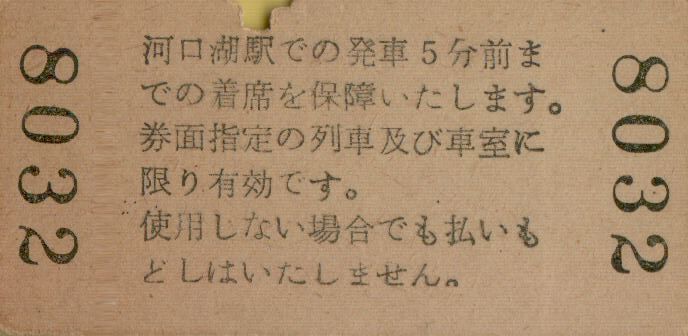 8032
河口湖駅での発車5分前ま
での着席を保障いたします。
券面指定の列車及び車室に
限り有効です。
使用しない場合でも払いも
どしはいたしません。
8032